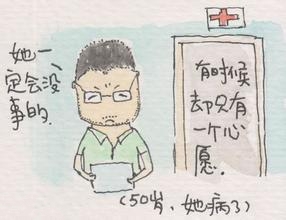 她一
定会没
事的.
有时候
却只有
一个心
愿.
(50岁、她病了)